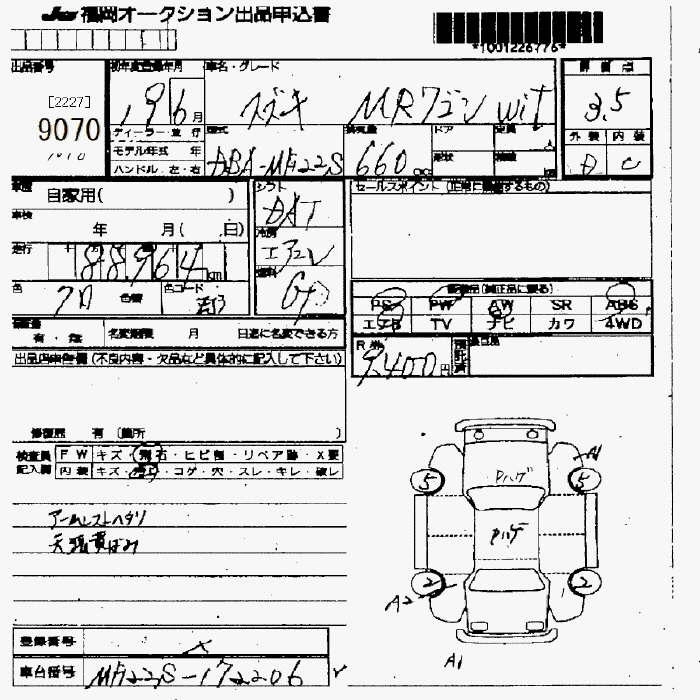 福岡オークション出品申込書
*1001226776*
出品番号
初年度登録年月
車名・グレード
評価点
[2227]
9070
1010
19 6月
スズキ MRワゴン wit
3.5
ディーラー・並行
型式
排気量
ドア
定員
外装 内装
モデル年式 年
ハンドル 左・右
DBA-MF22S
660
形状
D C
車歴
自家用( )
シフト
DAT
セールスポイント (正常に機能するもの)
車検
年 月( 日)
冷房
エアコン
走行
88,964 km
燃料
色
クロ
色替
色コード
装備品(純正品に限る)
PS PW AW SR ABS
エアB TV ナビ カワ 4WD
有・無
名変期限 月 日迄に名変できる方
R券
9,400円
預託済
出品店申告欄 (不良内容・欠品など具体的に記入して下さい)
修復歴 有 (箇所 )
検査員
記入欄
FW キズ・飛石・ヒビ割・リペア跡・X要
内装 キズ・汚れ・コゲ・穴・スレ・キレ・破レ
アームレストヘタリ
天張黄ばみ
A1
5
5
Pハゲ
Pハゲ
2
2
A2
A1
登録番号
車台番号
MF22S-172206